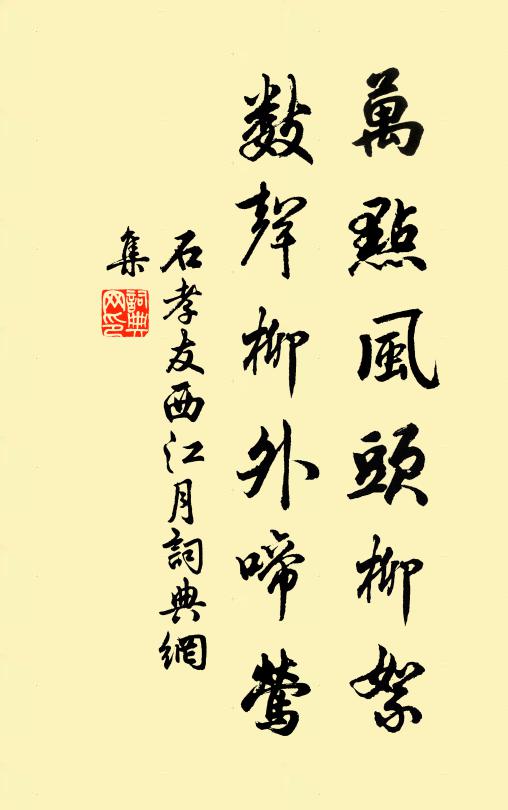 萬點風頭柳絮
數聲柳外啼鶯
石孝友西江月詞典網
集
詞典網印